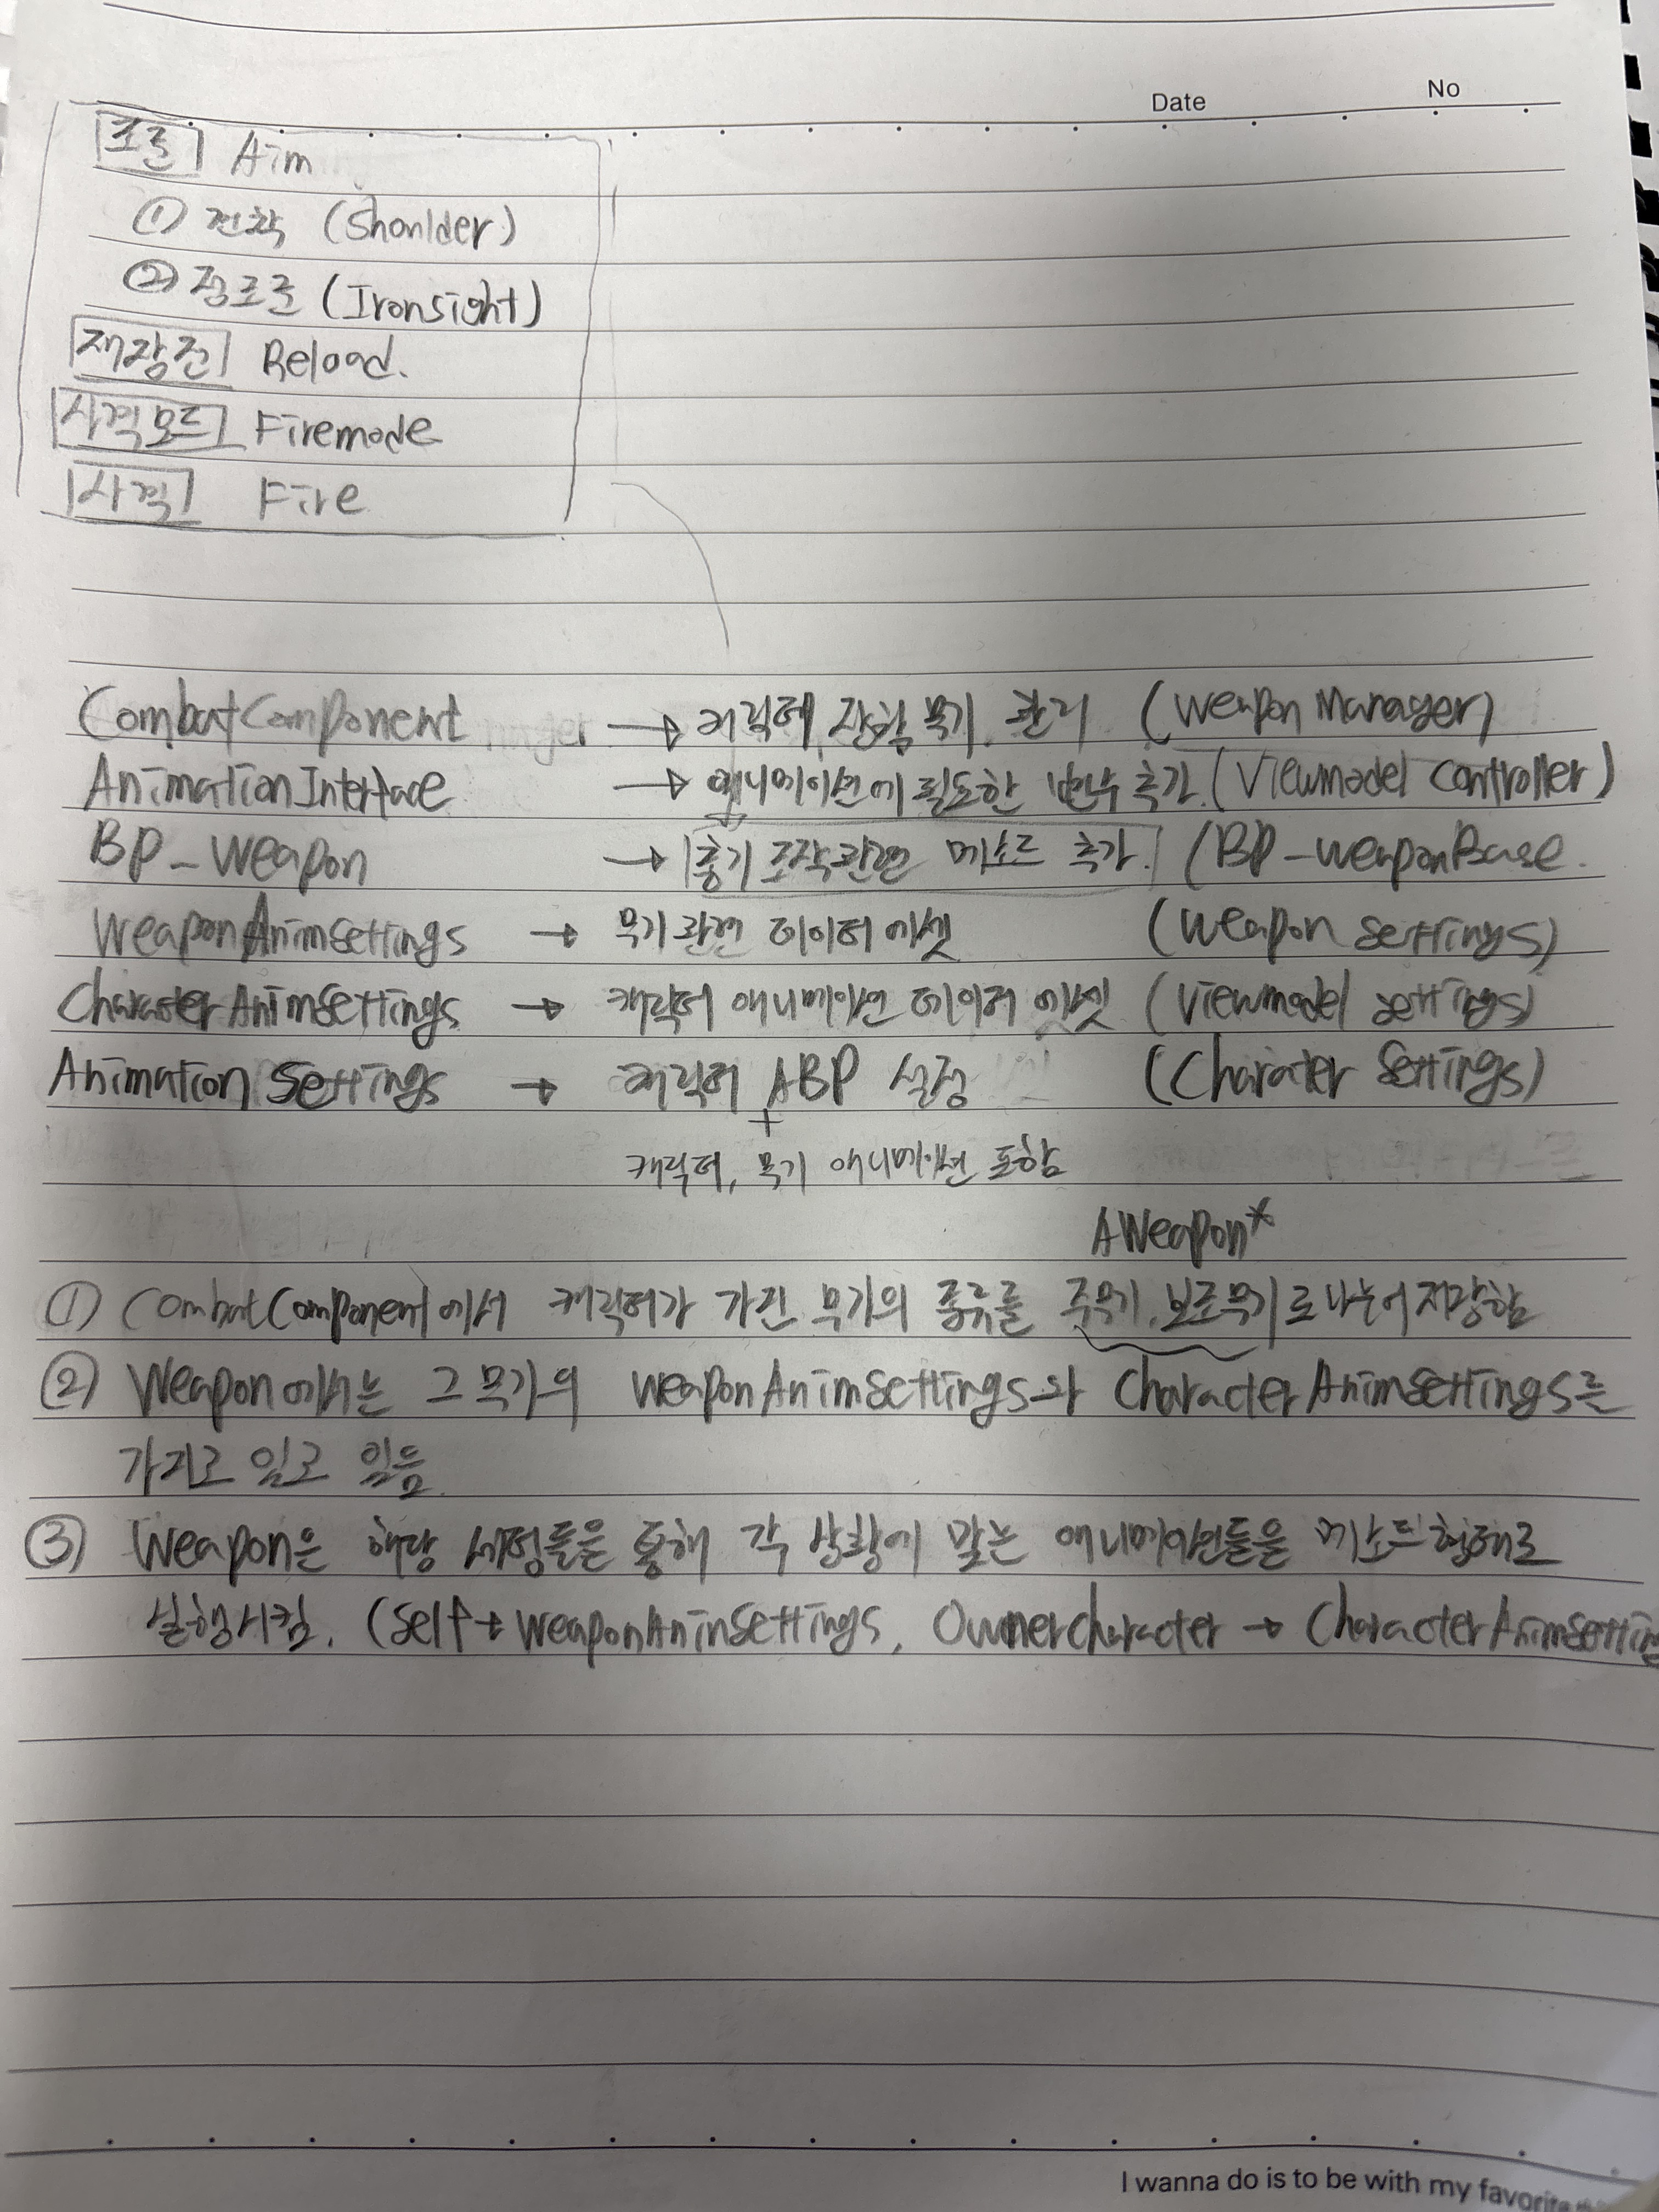 Date No
조준 Aim
① 견착 (Shoulder)
② 정조준 (Ironsight)
재장전 Reload.
사격모드 Firemode
사격 Fire
CombatComponent → 캐릭터 장착 무기 관리 (Weapon Manager)
AnimationInterface → 애니메이션에 필요한 변수 추가. (Viewmodel Controller)
BP_Weapon → 총기 조작관련 메소드 추가. (BP_WeaponBase.
WeaponAnimSettings → 무기관련 데이터 에셋 (Weapon Settings)
CharacterAnimSettings → 캐릭터 애니메이션 데이터 에셋 (Viewmodel Settings)
Animation Settings → 캐릭터 ABP 설정 (Character Settings)
+
캐릭터, 무기 애니메이션 포함
AWeapon*
① CombatComponent에서 캐릭터가 가진 무기의 종류를 주무기, 보조무기로 나누어 저장함
② Weapon에서는 그 무기의 WeaponAnimSettings와 CharacterAnimSettings를
가지고 있음
③ Weapon은 해당 세팅들을 통해 각 상황에 맞는 애니메이션들을 메소드 형태로
실행시킴. (Self → WeaponAnimSettings, OwnerCharacter → CharacterAnimSetting
I wanna do is to be with my favorite